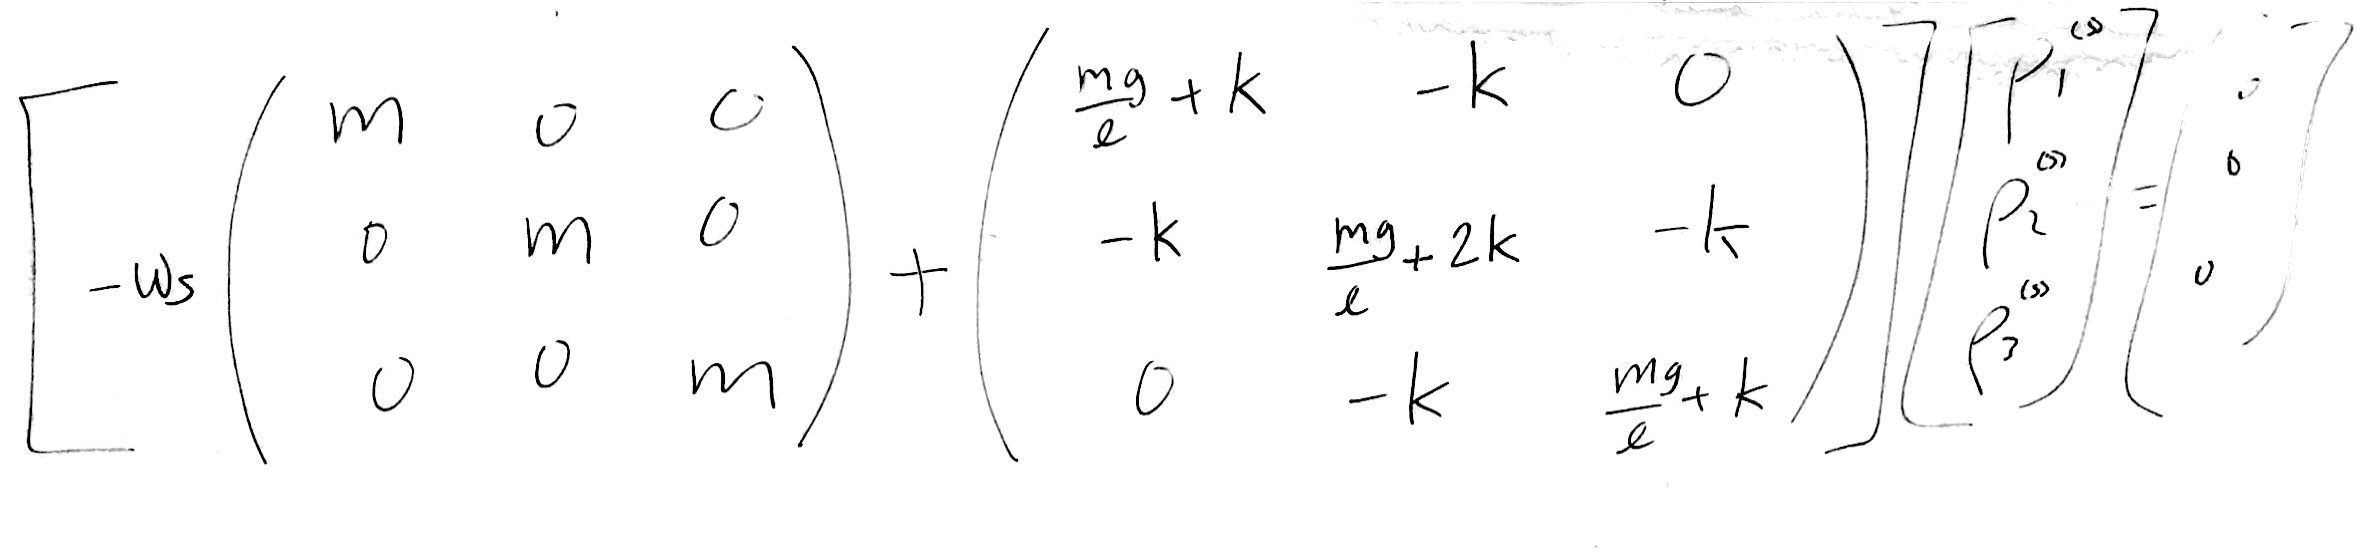 [ -ωs ( m 0 0 ; 0 m 0 ; 0 0 m ) + ( mg/ℓ + k -k 0 ; -k mg/ℓ + 2k -k ; 0 -k mg/ℓ + k ) ] [ ρ₁⁽ˢ⁾ ; ρ₂⁽ˢ⁾ ; ρ₃⁽ˢ⁾ ] = [ 0 ; 0 ; 0 ]